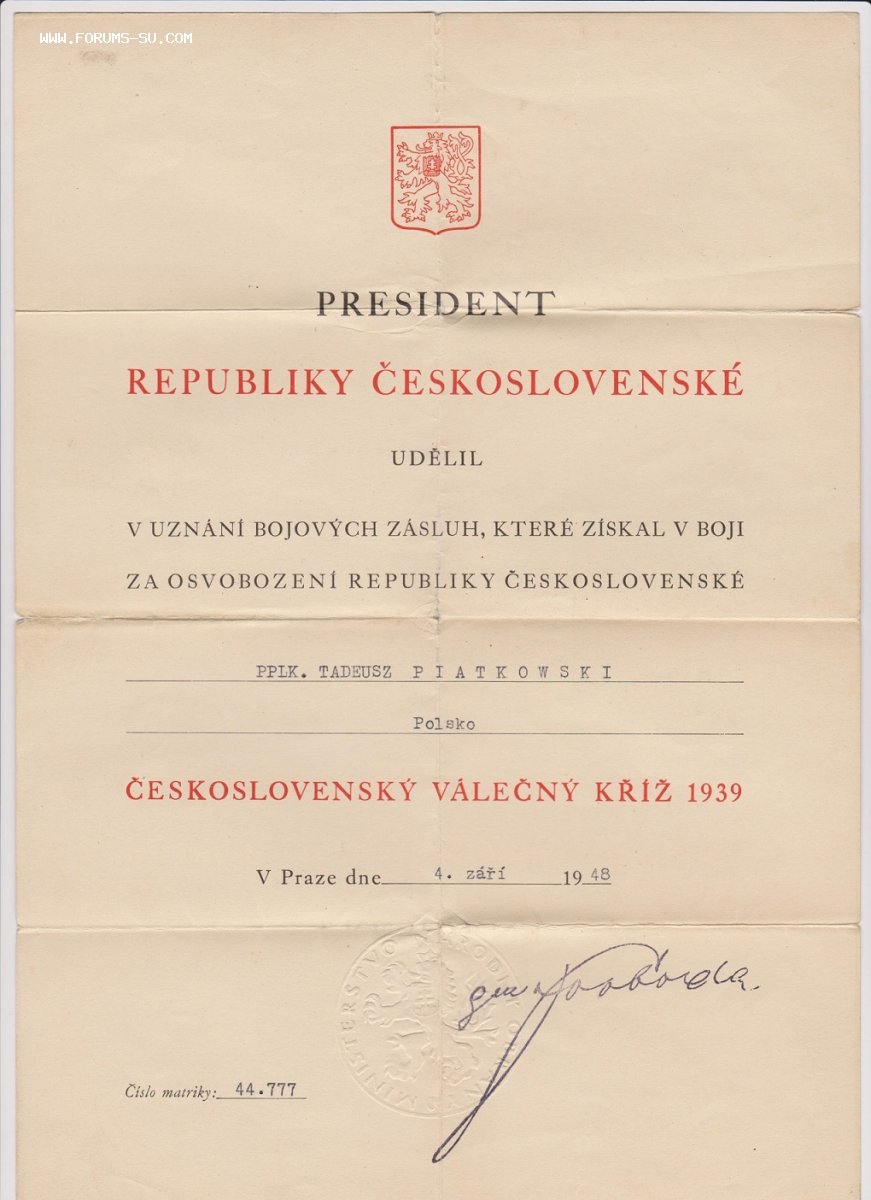 WWW.FORUMS-SU.COM
PRESIDENT
REPUBLIKY ČESKOSLOVENSKÉ
UDĚLIL
V UZNÁNÍ BOJOVÝCH ZÁSLUH, KTERÉ ZÍSKAL V BOJI
ZA OSVOBOZENÍ REPUBLIKY ČESKOSLOVENSKÉ
PPLK. TADEUSZ P I A T K O W S K I
Polsko
ČESKOSLOVENSKÝ VÁLEČNÝ KŘÍŽ 1939
V Praze dne 4. září 1948
MINISTERSTVO NÁRODNÍ OBRANY
gen Svoboda.
Číslo matriky: 44.777